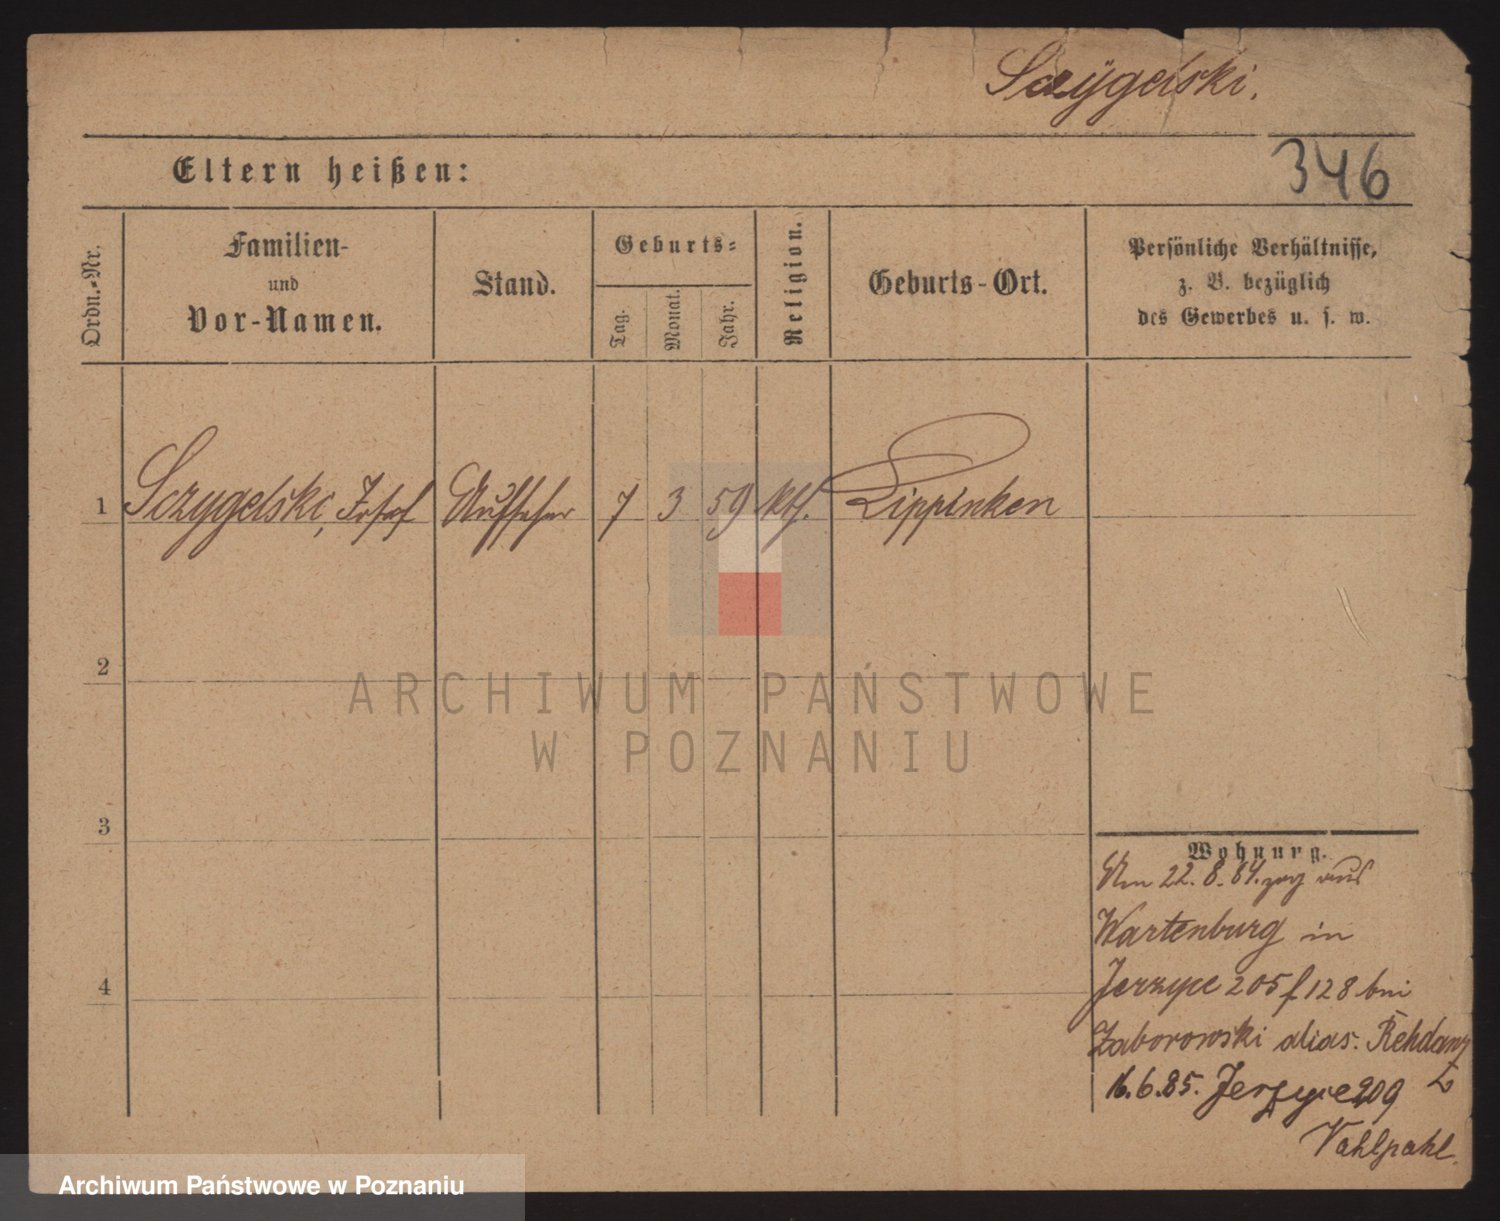 Sczÿgelski.
Eltern heißen:
346
Ordn.-Nr.
Familien-
und
Vor-Namen.
Stand.
Geburts-
Tag.
Monat.
Jahr.
Religion.
Geburts-Ort.
Persönliche Verhältnisse,
z. B. bezüglich
des Gewerbes u. s. w.
1 Sczygelski, Josef Aufseher 7 3 59 kth. Lippinken
2
3
4
Wohnung.
Am 22.8.84. zog aus
Wartenburg in
Jerzyce 205 f 128 bei
Zaborowski alias. Rehdanz
16.6.85. Jerzyce 209
Vahlpahl.
ARCHIWUM PAŃSTWOWE
W POZNANIU
Archiwum Państwowe w Poznaniu